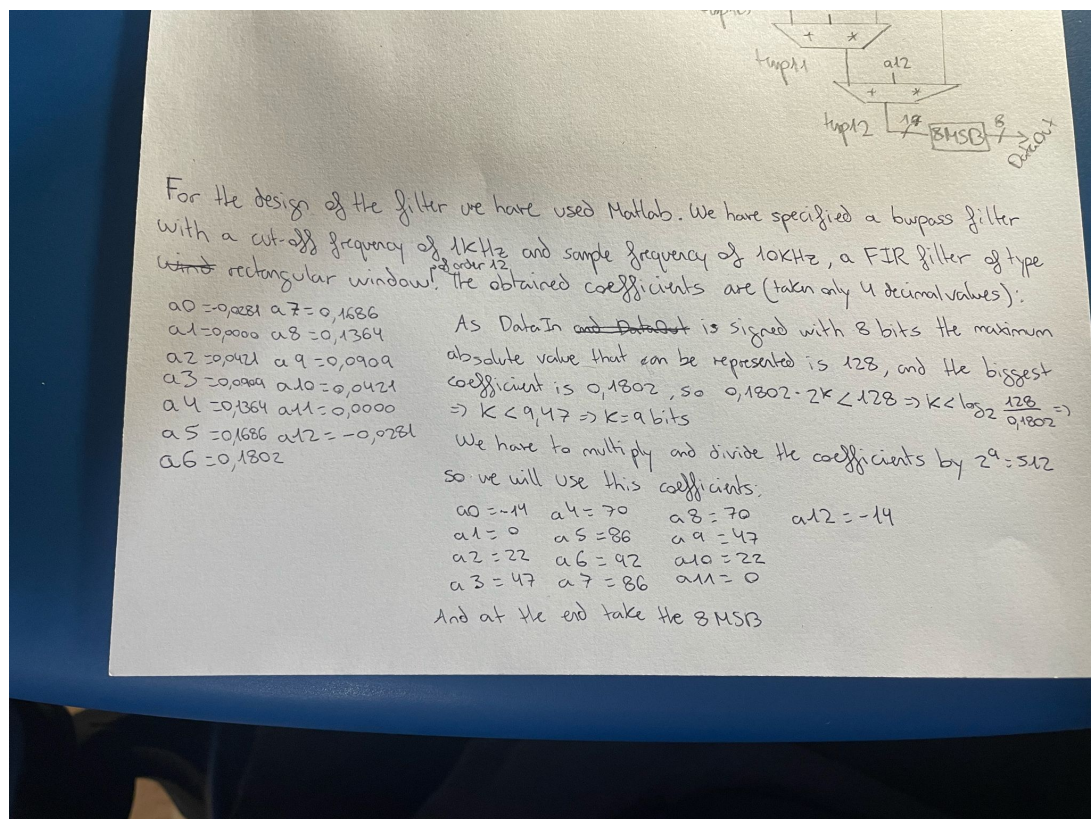 tmp11
+ *
a12
+ *
tmp12
17
8MSB
8
DataOut
For the design of the filter we have used Matlab. We have specified a bwpass filter
with a cut-off frequency of 1KHz and sample frequency of 10KHz, a FIR filter of type
wind rectangular window of order 12. The obtained coefficients are (taken only 4 decimal values):
a0 =-0,0281 a7 = 0,1686
a1=0,0000 a8 = 0,1364
a2 =0,0421 a9 =0,0909
a3 =0,0909 a10=0,0421
a4 =0,1364 a11=0,0000
a5 =0,1686 a12 = -0,0281
a6 =0,1802
As DataIn and DataOut is signed with 8 bits the maximum
absolute value that can be represented is 128, and the biggest
coefficient is 0,1802, so 0,1802·2k<128 => K<log2 128/0,1802 =>
=> K<9,47 => K=9 bits
We have to multiply and divide the coefficients by 2^9=512
so we will use this coefficients:
a0 =-14 a4=70 a8=70 a12=-14
a1= 0 a5=86 a9=47
a2=22 a6=92 a10=22
a3=47 a7=86 a11=0
And at the end take the 8MSB